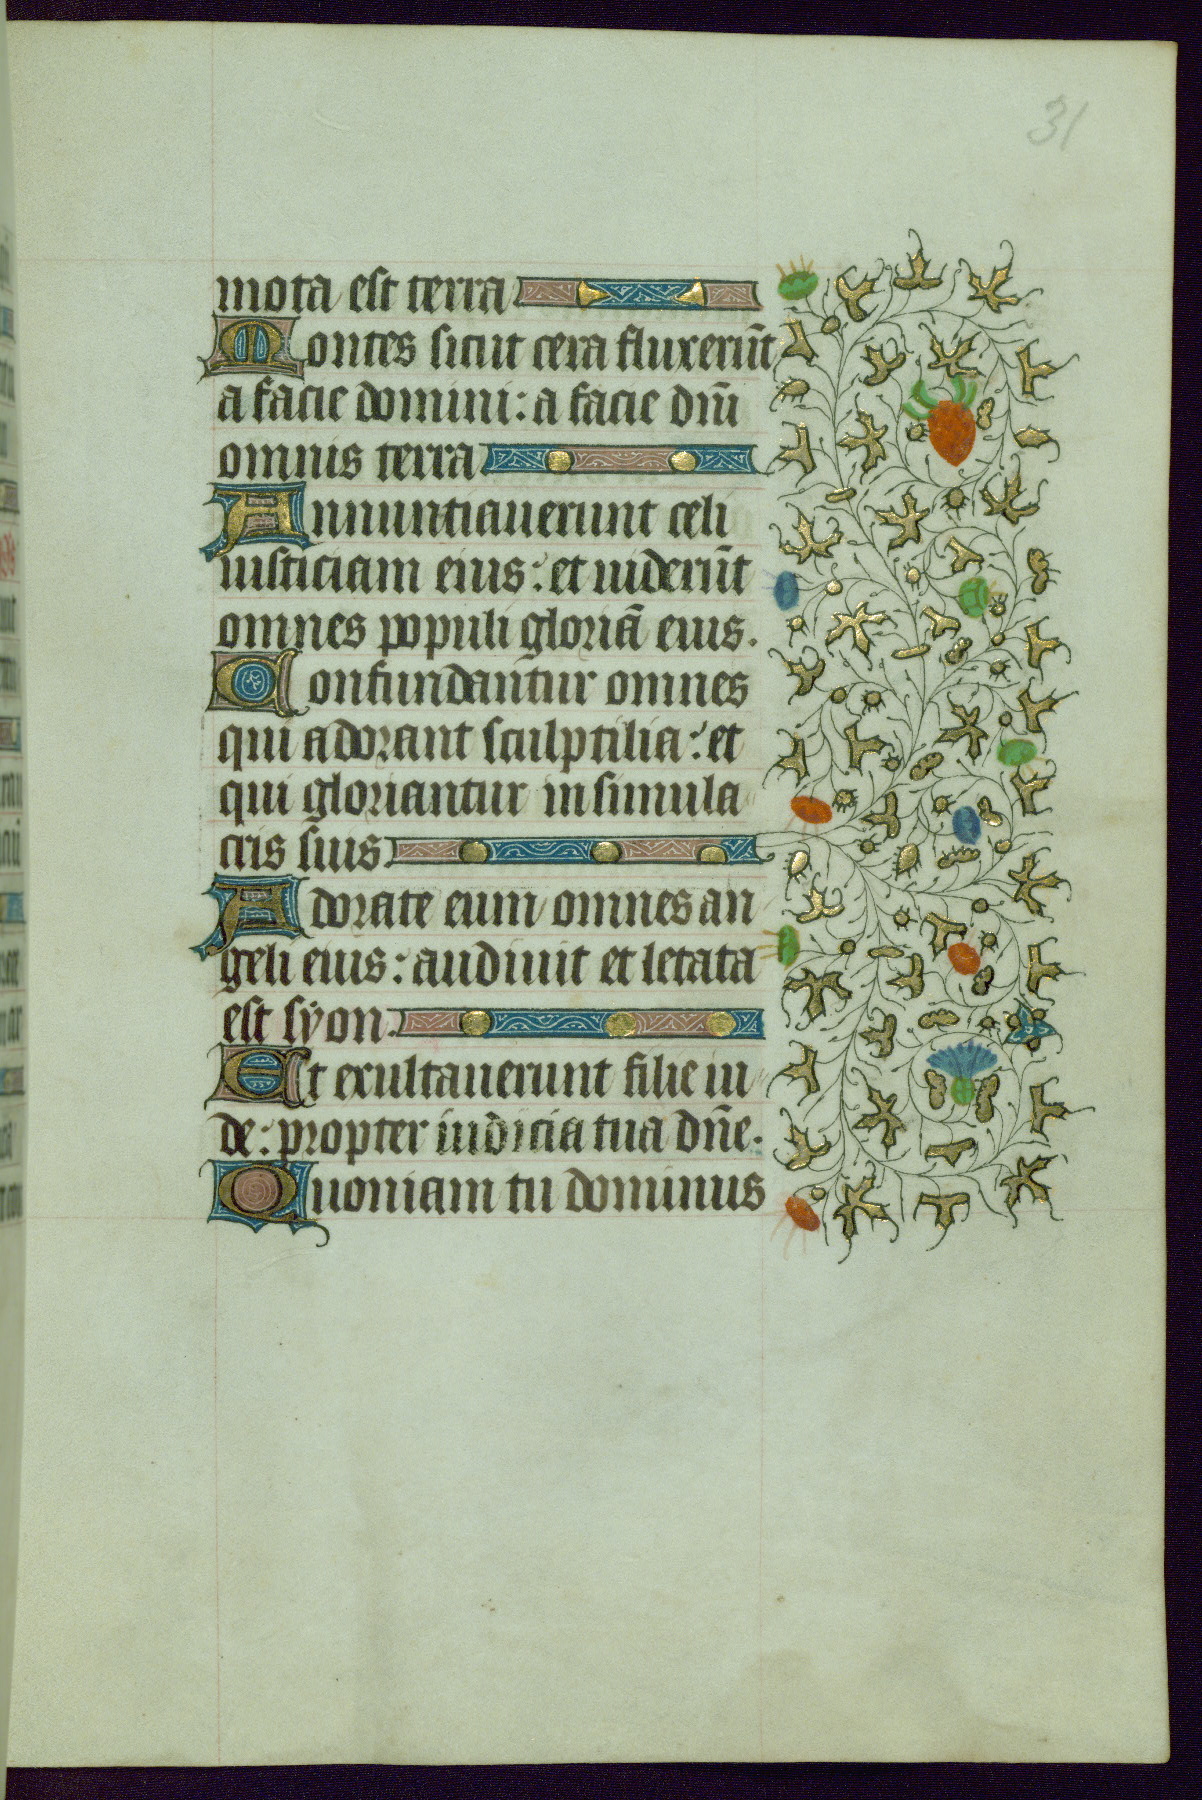 31
mota est terra
Montes sicut cera fluxerūt
a facie domini: a facie dn̄i
omnis terra
Annuntiauerunt celi
iusticiam eius: et uiderūt
omnes populi gloriā eius.
Confundantur omnes
qui adorant sculptilia: et
qui gloriantur in simula
cris suis
Adorate eum omnes an
geli eius: audiuit et letata
est syon.
Et exultauerunt filie iu
de: propter iudicia tua dn̄e.
Quoniam tu dominus